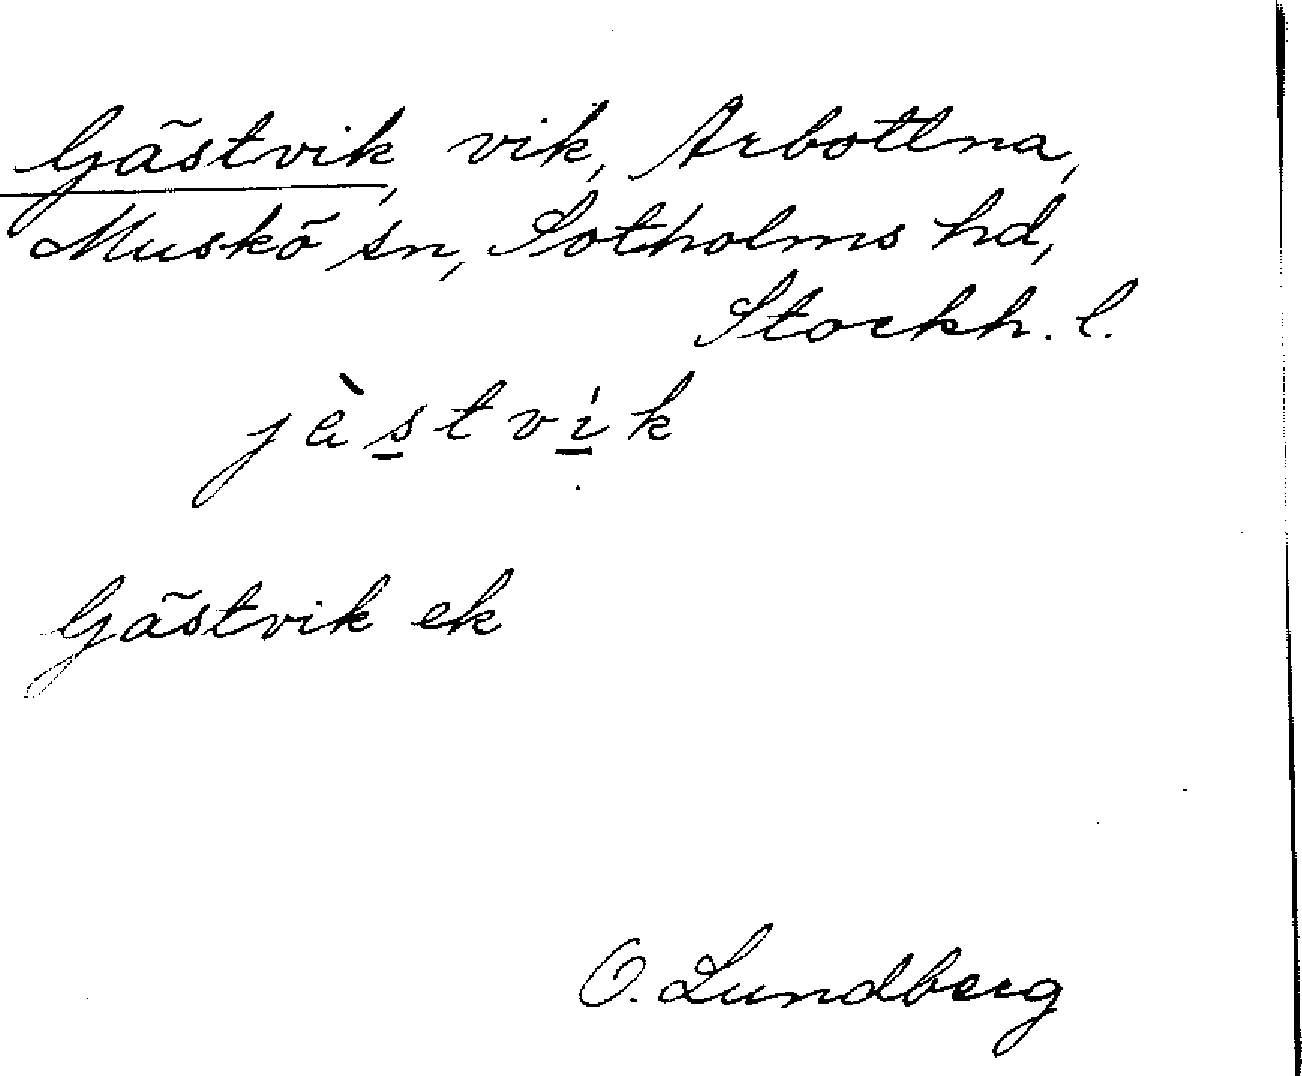 Gästvik, vik, Arbottna,
Muskö sn, Sotholms hd,
Stockh. l.
jàstvík
Gästvik ek
O. Lundberg